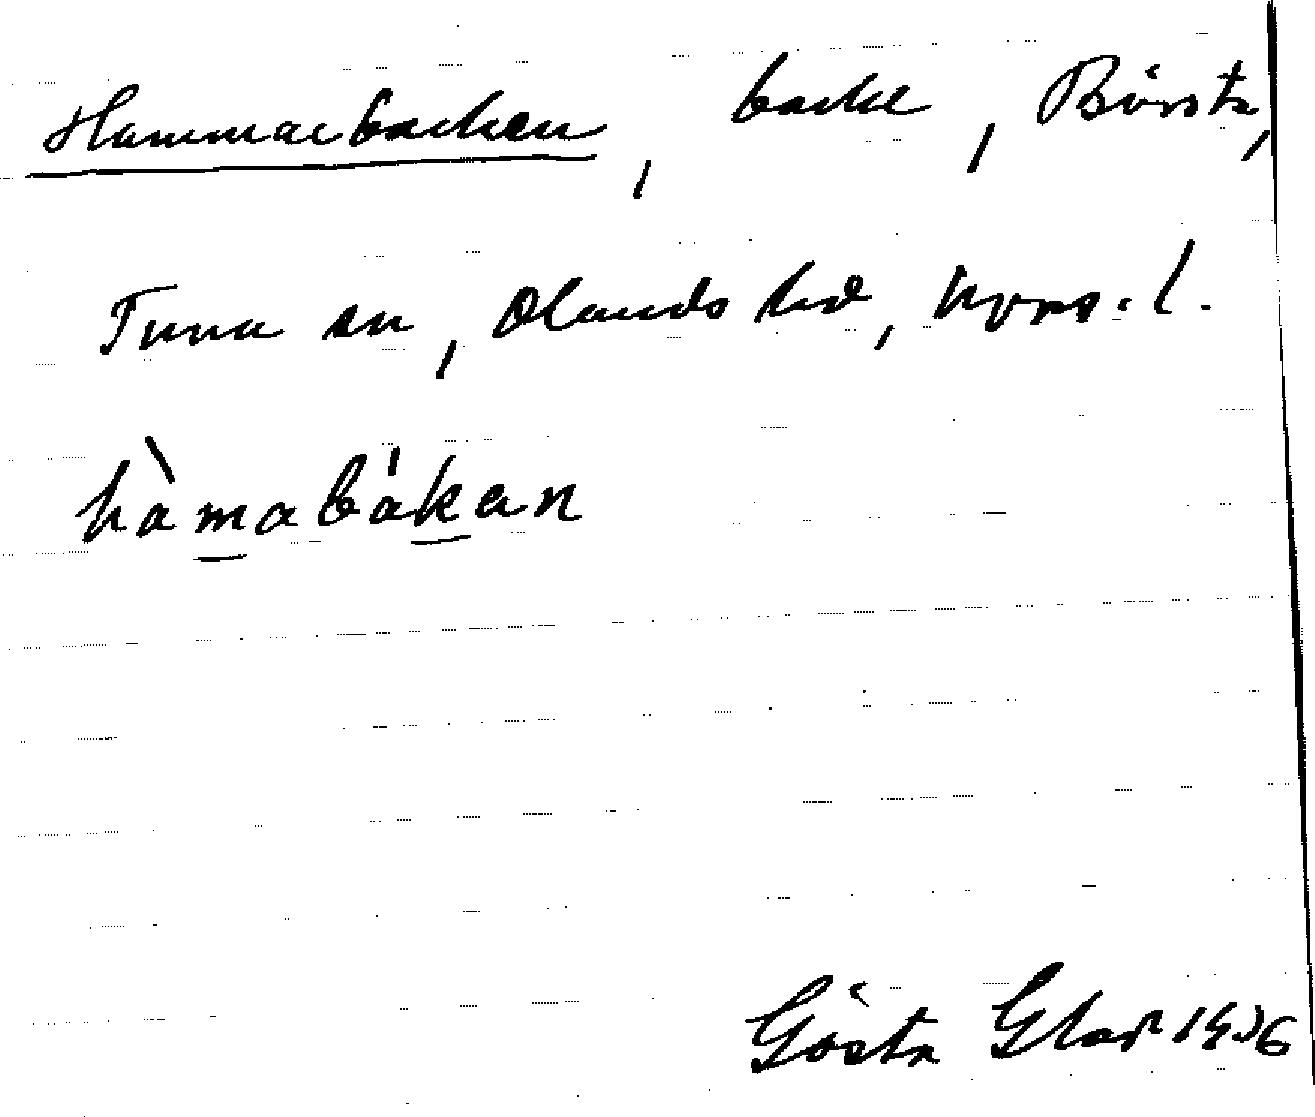 Hammarbacken, backe, Börsta,
Tuna sn, Olands hd, Upps. l.
hàmabákan
Gösta